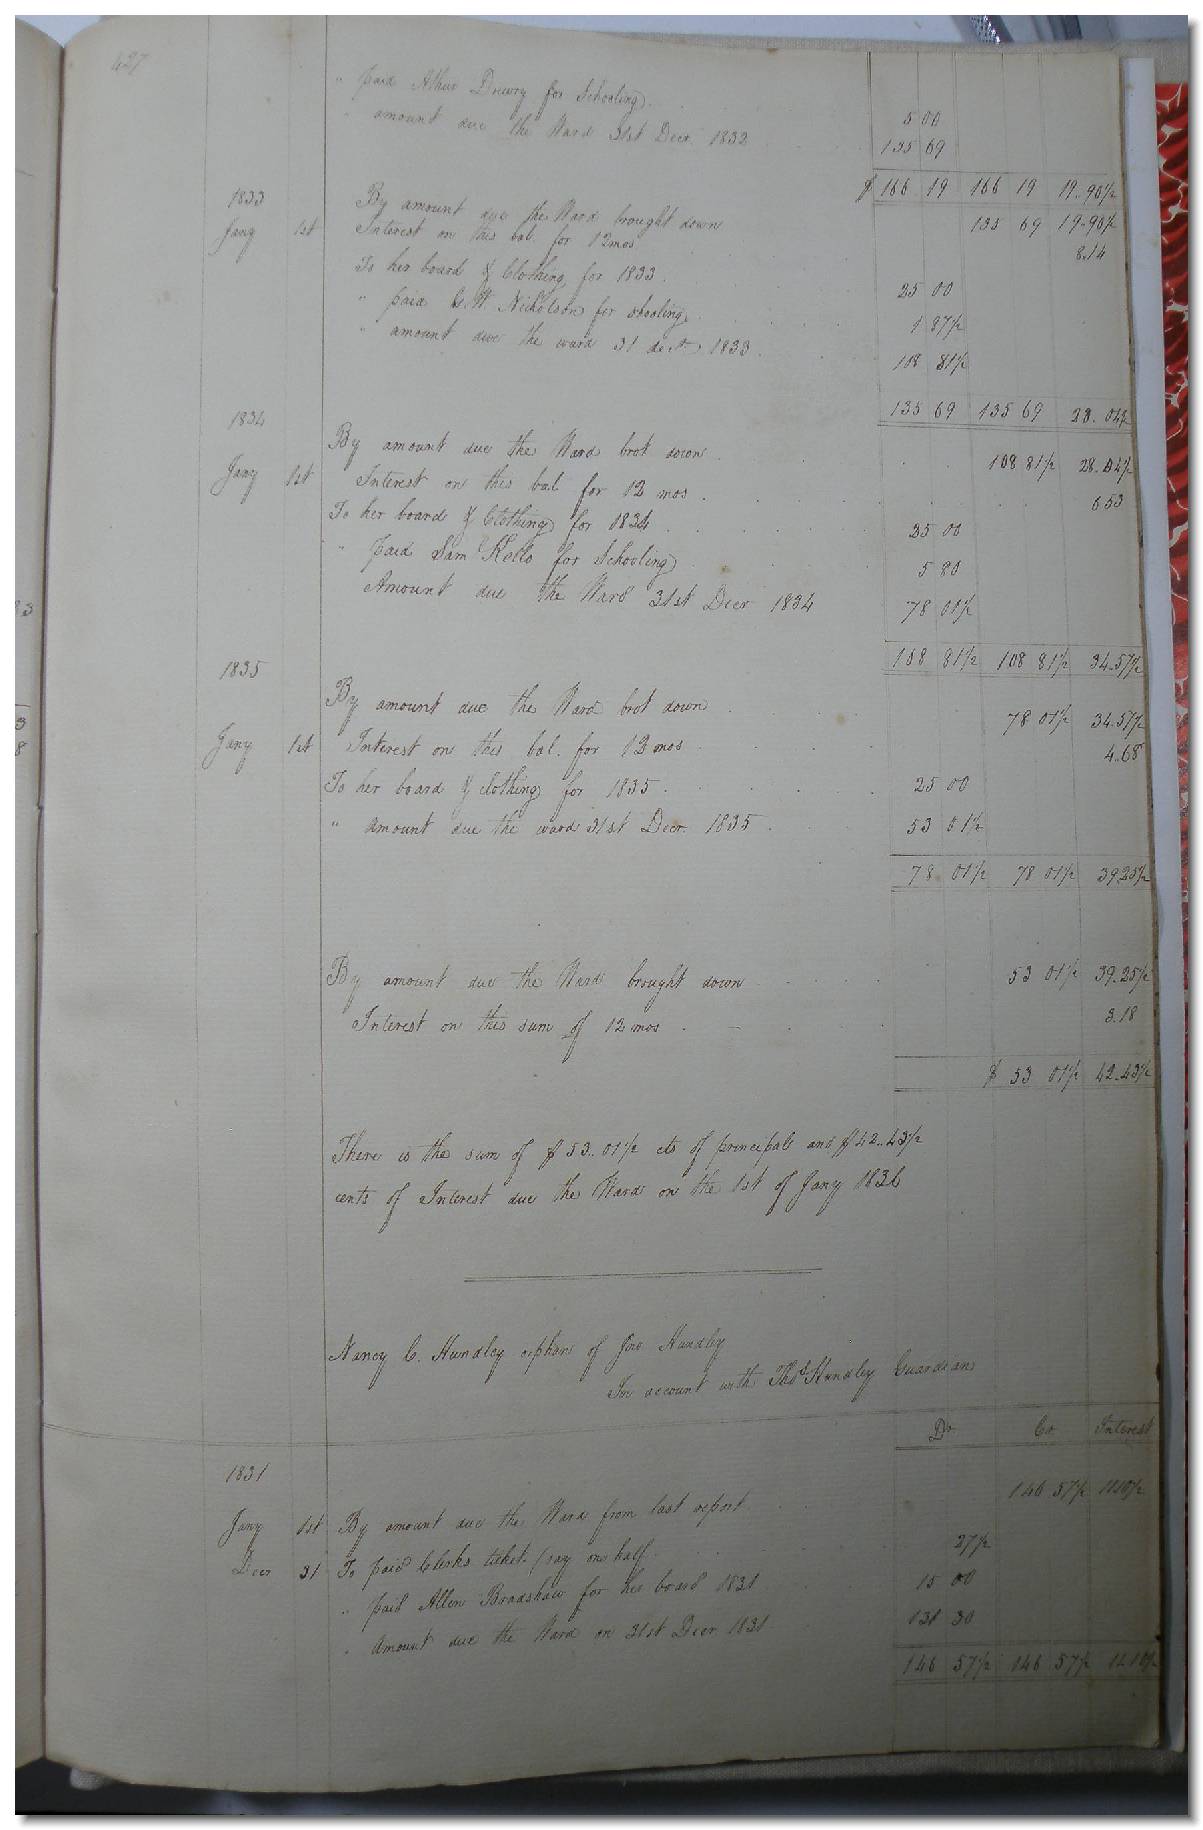 427
" paid Arthur Drewry for Schooling 5 00
" amount due the Ward 31st Decr 1832 135 69
$ 166 19 166 19 19.90½
1833
Jany 1st By amount due the Ward brought down 135 69 19.90½
Interest on this bal. for 12 mos 8.14
To her board & Clothing for 1833 25 00
" paid C. W. Nicholson for schooling 1 87½
" amount due the ward 31 dec 1833 108 81½
135 69 135 69 28.04½
1834
By amount due the Ward brot down 108 81½ 28.04½
Jany 1st Interest on this bal for 12 mos 6 53
To her board & Clothing for 1834 25 00
" paid Saml Kello for Schooling 5 80
Amount due the Ward 31st Decr 1834 78 01½
108 81½ 108 81½ 34.57½
1835
By amount due the Ward brot down 78 01½ 34.57½
Jany 1st Interest on this bal. for 12 mos 4.68
To her board & clothing for 1835 25 00
" Amount due the ward 31st Decr 1835 53 01½
78 01½ 78 01½ 39 25½
By amount due the Ward brought down 53 01½ 39.25½
Interest on this sum of 12 mos 3.18
$ 53 01½ 42.43½
There is the sum of $53..01½ cts of principal and $42..43½
cents of Interest due the Ward on the 1st of Jany 1836
Nancy C. Hundley orphan of Jno Hundley
In account with Thos Hundley Guardian
Dr Cr Interest
1831
Jany 1st By amount due the Ward from last report 146 57½ 11 10½
Decr 31 To paid Clerks ticket (say on half 27½
" paid Allen Bradshaw for her board 1831 15 00
" Amount due the Ward on 31st Decr 1831 131 30
146 57½ 146 57½ 11 10½